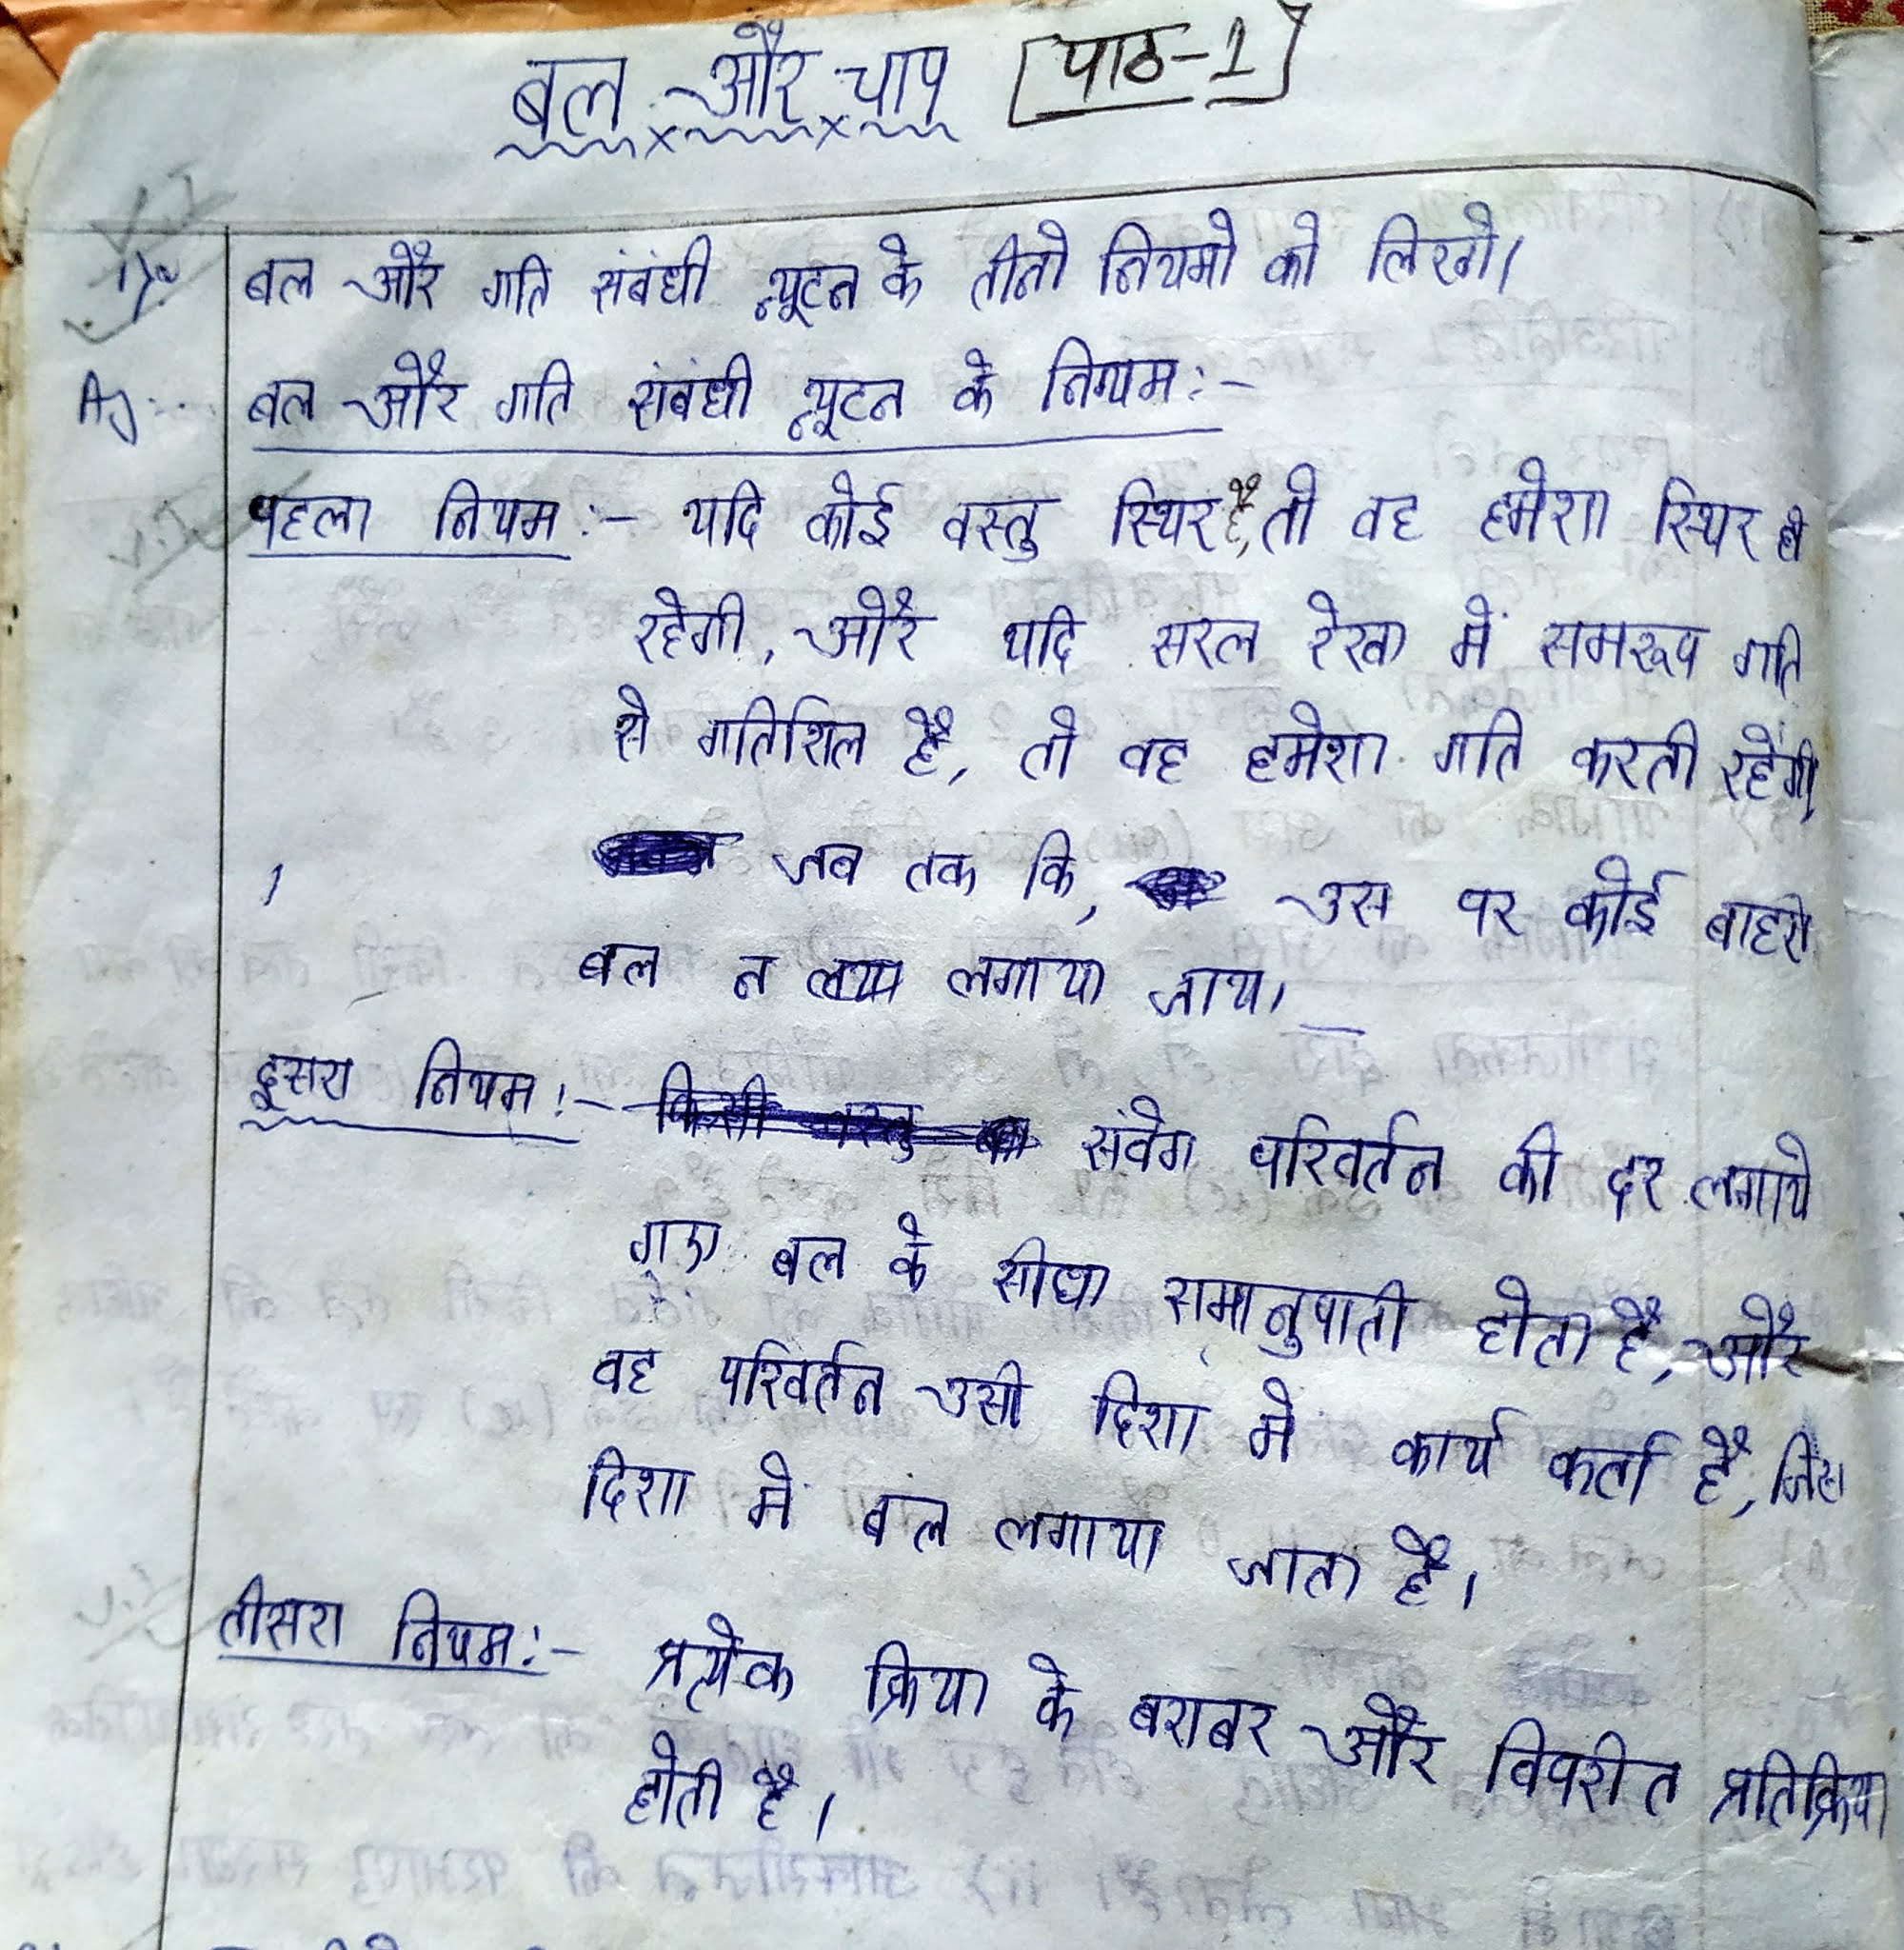 बल और चाप [पाठ-1]
V.I
1) बल और गति संबंधी न्यूटन के तीनो नियमो को लिखो।
बल और गति संबंधी न्यूटन के नियम:-
V.I
पहला नियम:- यदि कोई वस्तु स्थिर है, तो वह हमेशा स्थिर ही
रहेगी, और यदि सरल रेखा में समरूप गति
से गतिशिल है, तो वह हमेशा गति करती रहेंगी,
जब तक कि, उस पर कोई बाहरी
बल न लगाया जाय।
दूसरा नियम:- किसी वस्तु का संवेग परिवर्तन की दर लगाये
गए बल के सीधा समानुपाती होता है, और
वह परिवर्तन उसी दिशा में कार्य कर्ता है, जिस
दिशा में बल लगाया जाता है।
V.I
तीसरा नियम:- प्रत्येक क्रिया के बराबर और विपरीत प्रतिक्रिया
होती है।